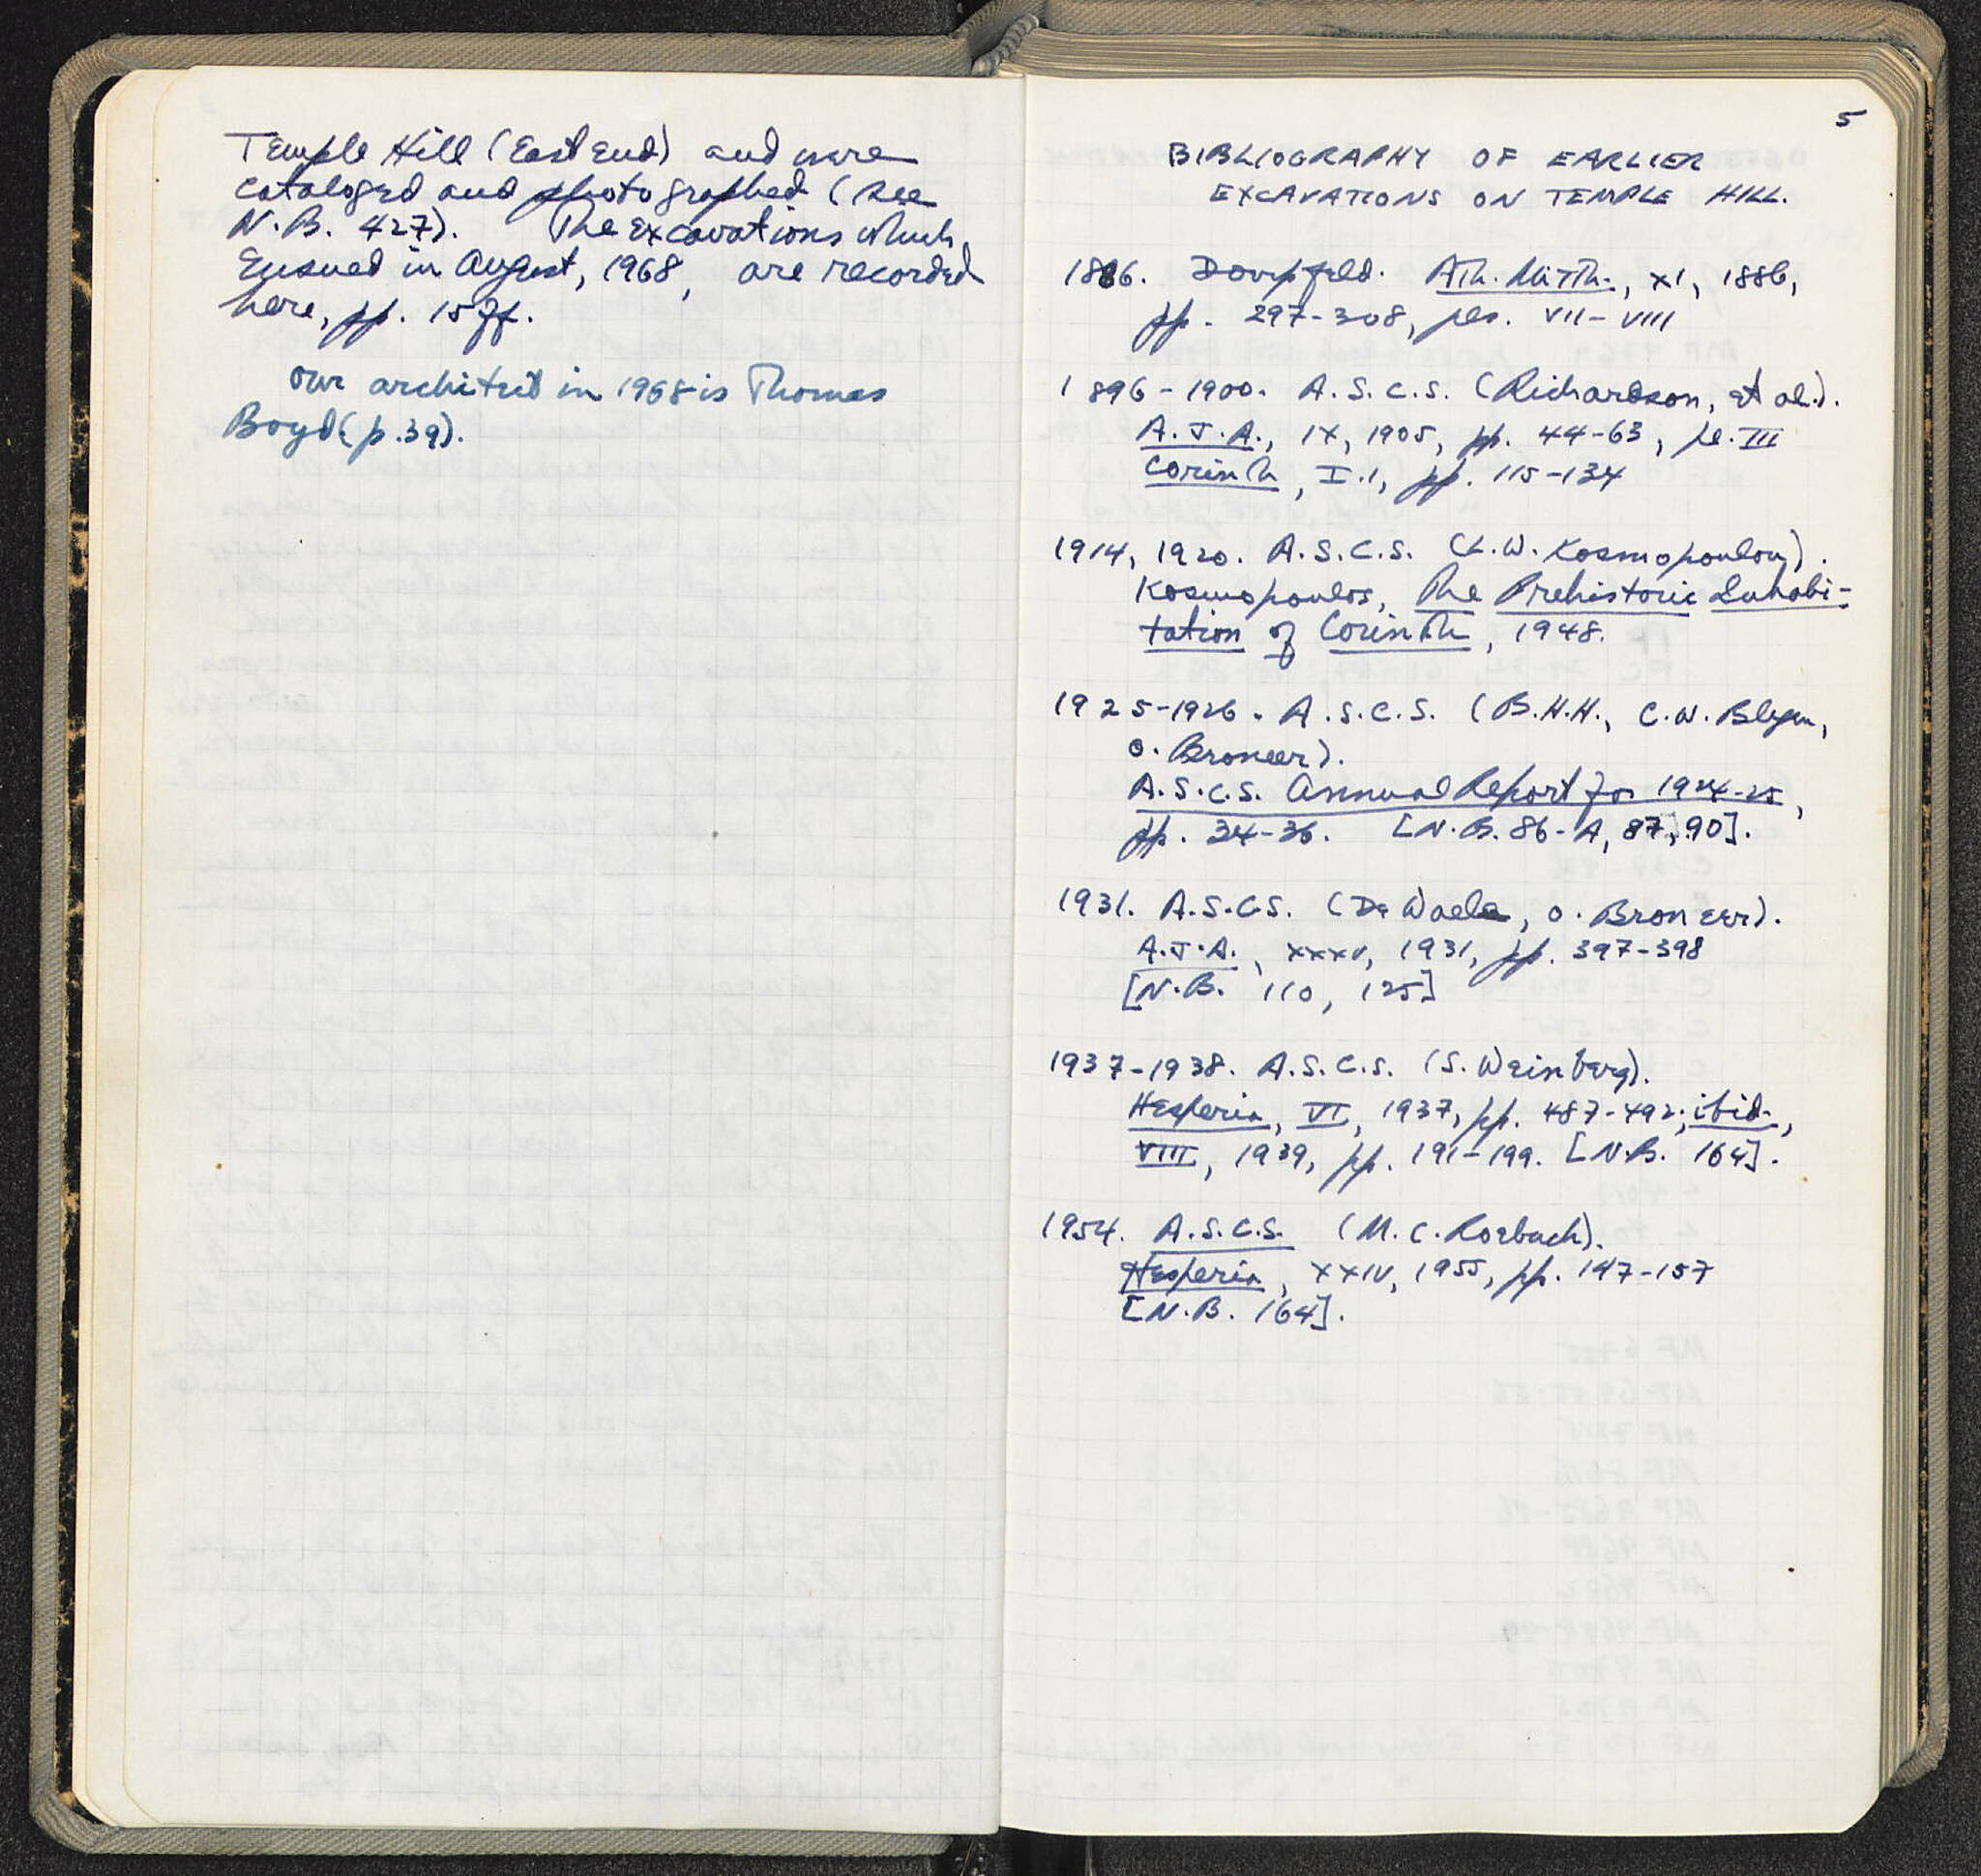 Temple Hill (East End) and were
cataloged and photographed (see
N.B. 427). The excavations which
ensued in August, 1968, are recorded
here, pp. 15 ff.
our architect in 1968 is Thomas
Boyd (p. 39).
5
BIBLIOGRAPHY OF EARLIER
EXCAVATIONS ON TEMPLE HILL.
1886. Doerpfeld. Ath. Mitth., XI, 1886,
pp. 297-308, pls. VII-VIII
1896-1900. A.S.C.S. (Richardson, et al.).
A.J.A., IX, 1905, pp. 44-63, pl. III
Corinth, I.1, pp. 115-134
1914, 1920. A.S.C.S. (L.W. Kosmopoulou).
Kosmopoulos, The Prehistoric Inhabi-
tation of Corinth, 1948.
1925-1926. A.S.C.S. (B.H.H., C.W. Blegen,
O. Broneer).
A.S.C.S. Annual Report for 1924-25,
pp. 34-36. [N.B. 86-A, 87, 90].
1931. A.S.C.S. (De Waele, O. Broneer).
A.J.A., XXXV, 1931, pp. 397-398
[N.B. 110, 125]
1937-1938. A.S.C.S. (S. Weinberg).
Hesperia, VI, 1937, pp. 487-492; ibid.,
VIII, 1939, pp. 191-199. [N.B. 164].
1954. A.S.C.S. (M.C. Roebuck).
Hesperia, XXIV, 1955, pp. 147-157
[N.B. 164].